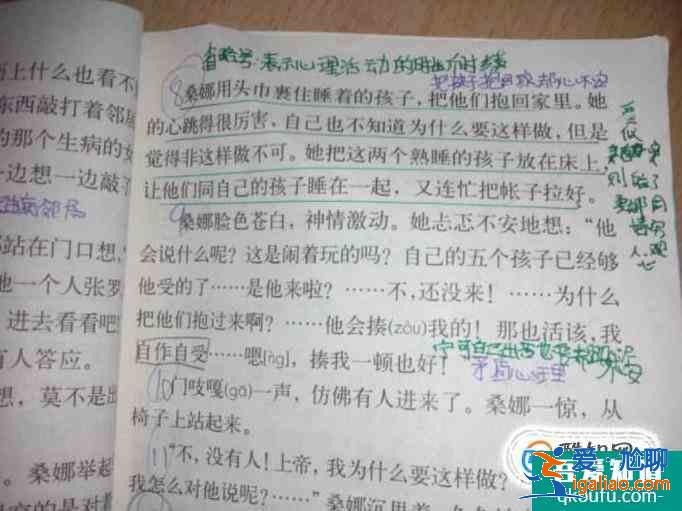 省略号:表示心理活动的
把孩子抱回家却心不安
8桑娜用头巾裹住睡着的孩子,把他们抱回家里。她
的心跳得很厉害,自己也不知道为什么要这样做,但是
觉得非这样做不可。她把这两个熟睡的孩子放在床上,
让他们同自己的孩子睡在一起,又连忙把帐子拉好。
9桑娜脸色苍白,神情激动。她忐忑不安地想:“他
会说什么呢?这是闹着玩的吗?自己的五个孩子已经够
他受的了……是他来啦?……不,还没来!……为什么
把他们抱过来啊?……他会揍(zòu)我的!那也活该,我
自作自受……嗯(ńg),揍我一顿也好!
宁可自己
矛盾心里
10门吱嘎(gā)一声,仿佛有人进来了。桑娜一惊,从
椅子上站起来。
11“不,没有人!上帝,我为什么要这样做?
我怎么对他说呢?……”桑娜沉思着
上什么也看不
东西敲打着邻居
的那个生病的女
一边想一边敲了
站在门口想,
他一个人张罗
进去看看吧
有人答应。
想,莫不是出
。桑娜举起
的是对
酷知网
爱尬聊
qk3ufu.com